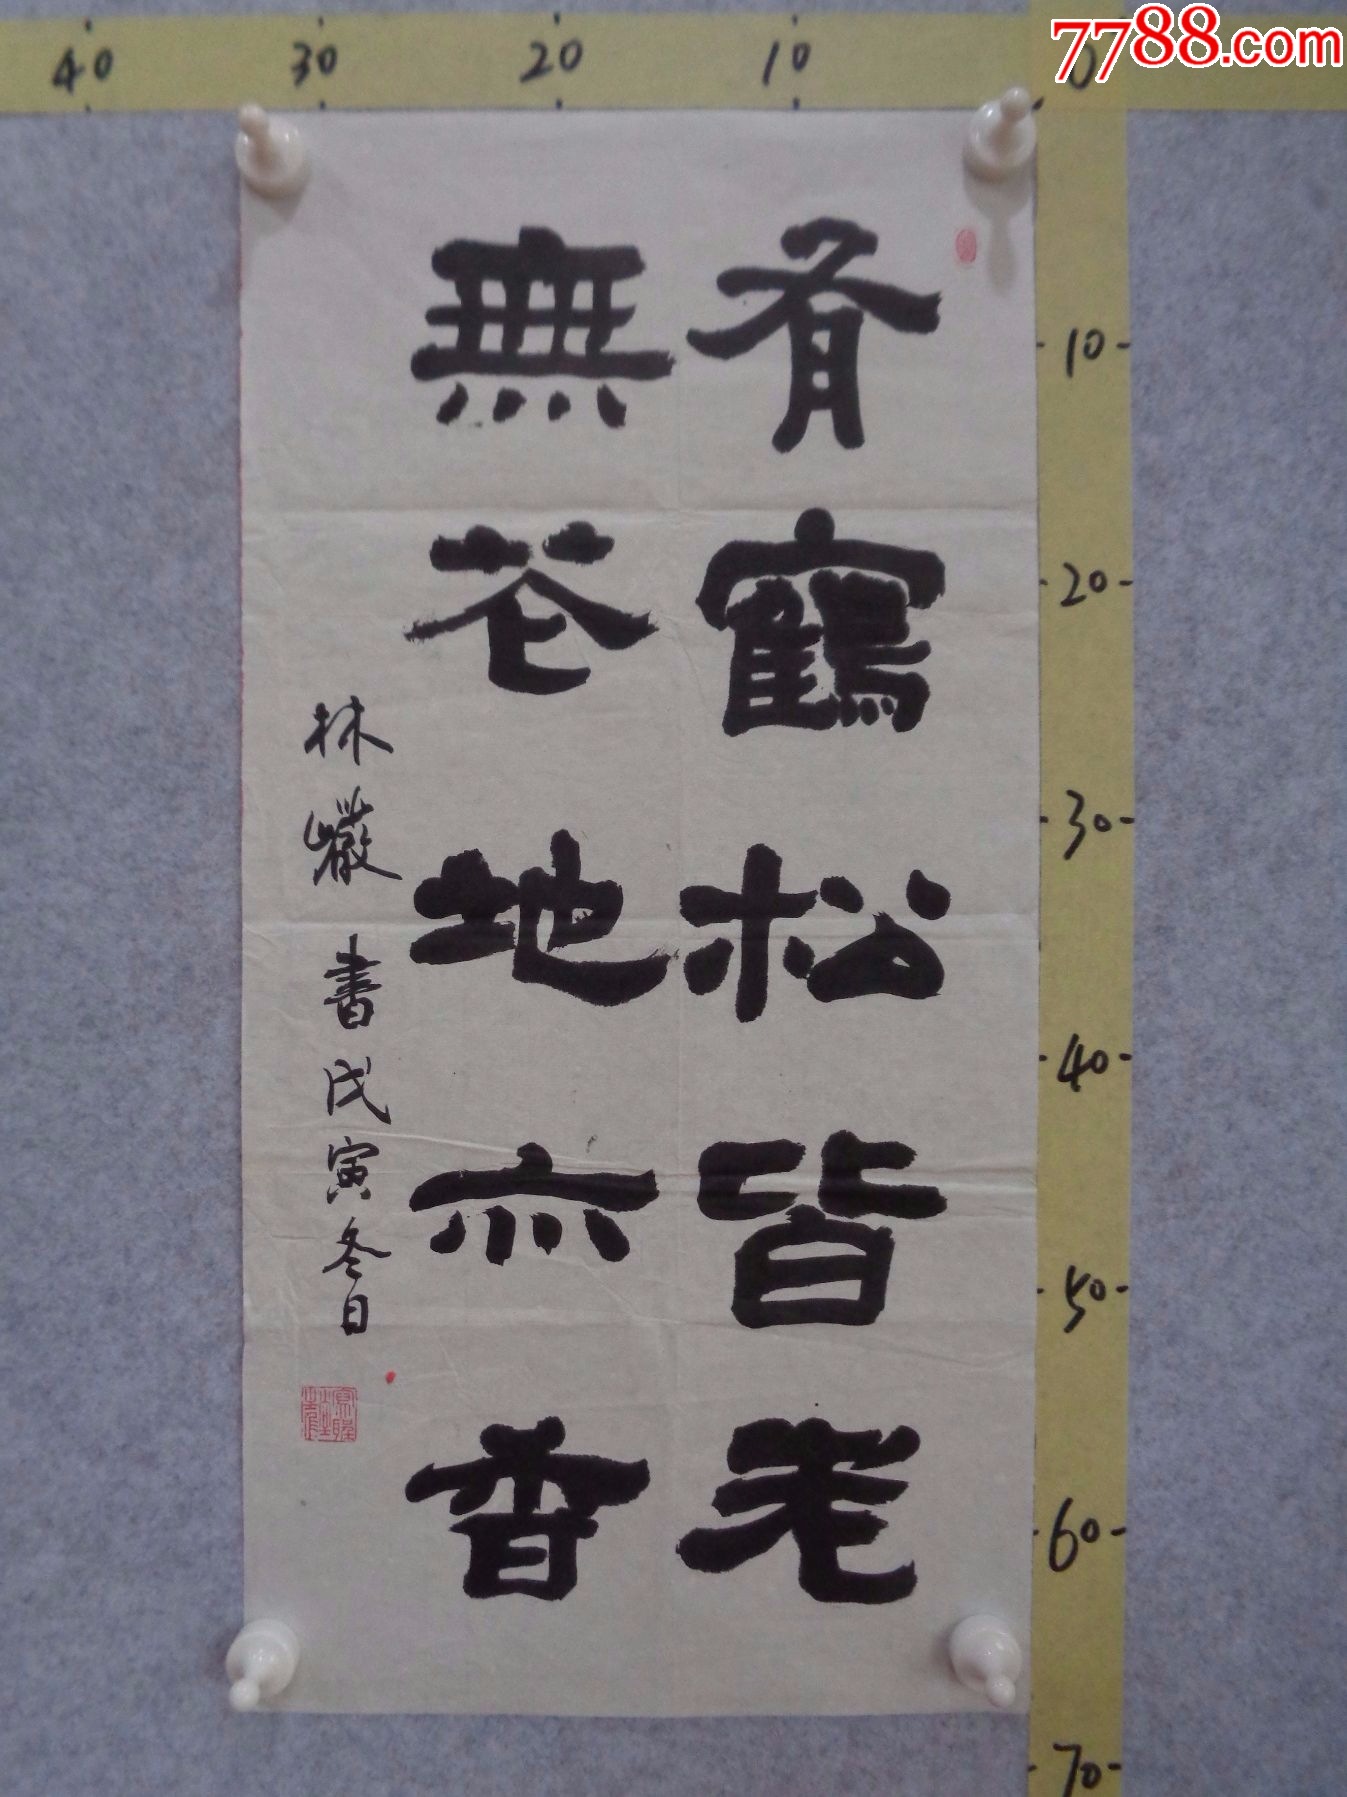 7788.com
40 30 20 10 0
有鶴松皆老
無花地亦香
林巖書戊寅冬日
10
20
30
40
50
60
70